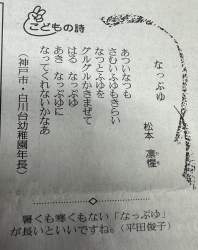 こどもの詩
なっぷゆ
松本 凛惺
あついなつも
さむいふゆもきらい
なつとふゆを
グルグルかきまぜて
はる なっぷゆ
あき なっぷゆに
なってくれないかなあ
(神戸市・白川台幼稚園年長)
暑くも寒くもない「なっぷゆ」
が長いといいですね。(平田俊子)